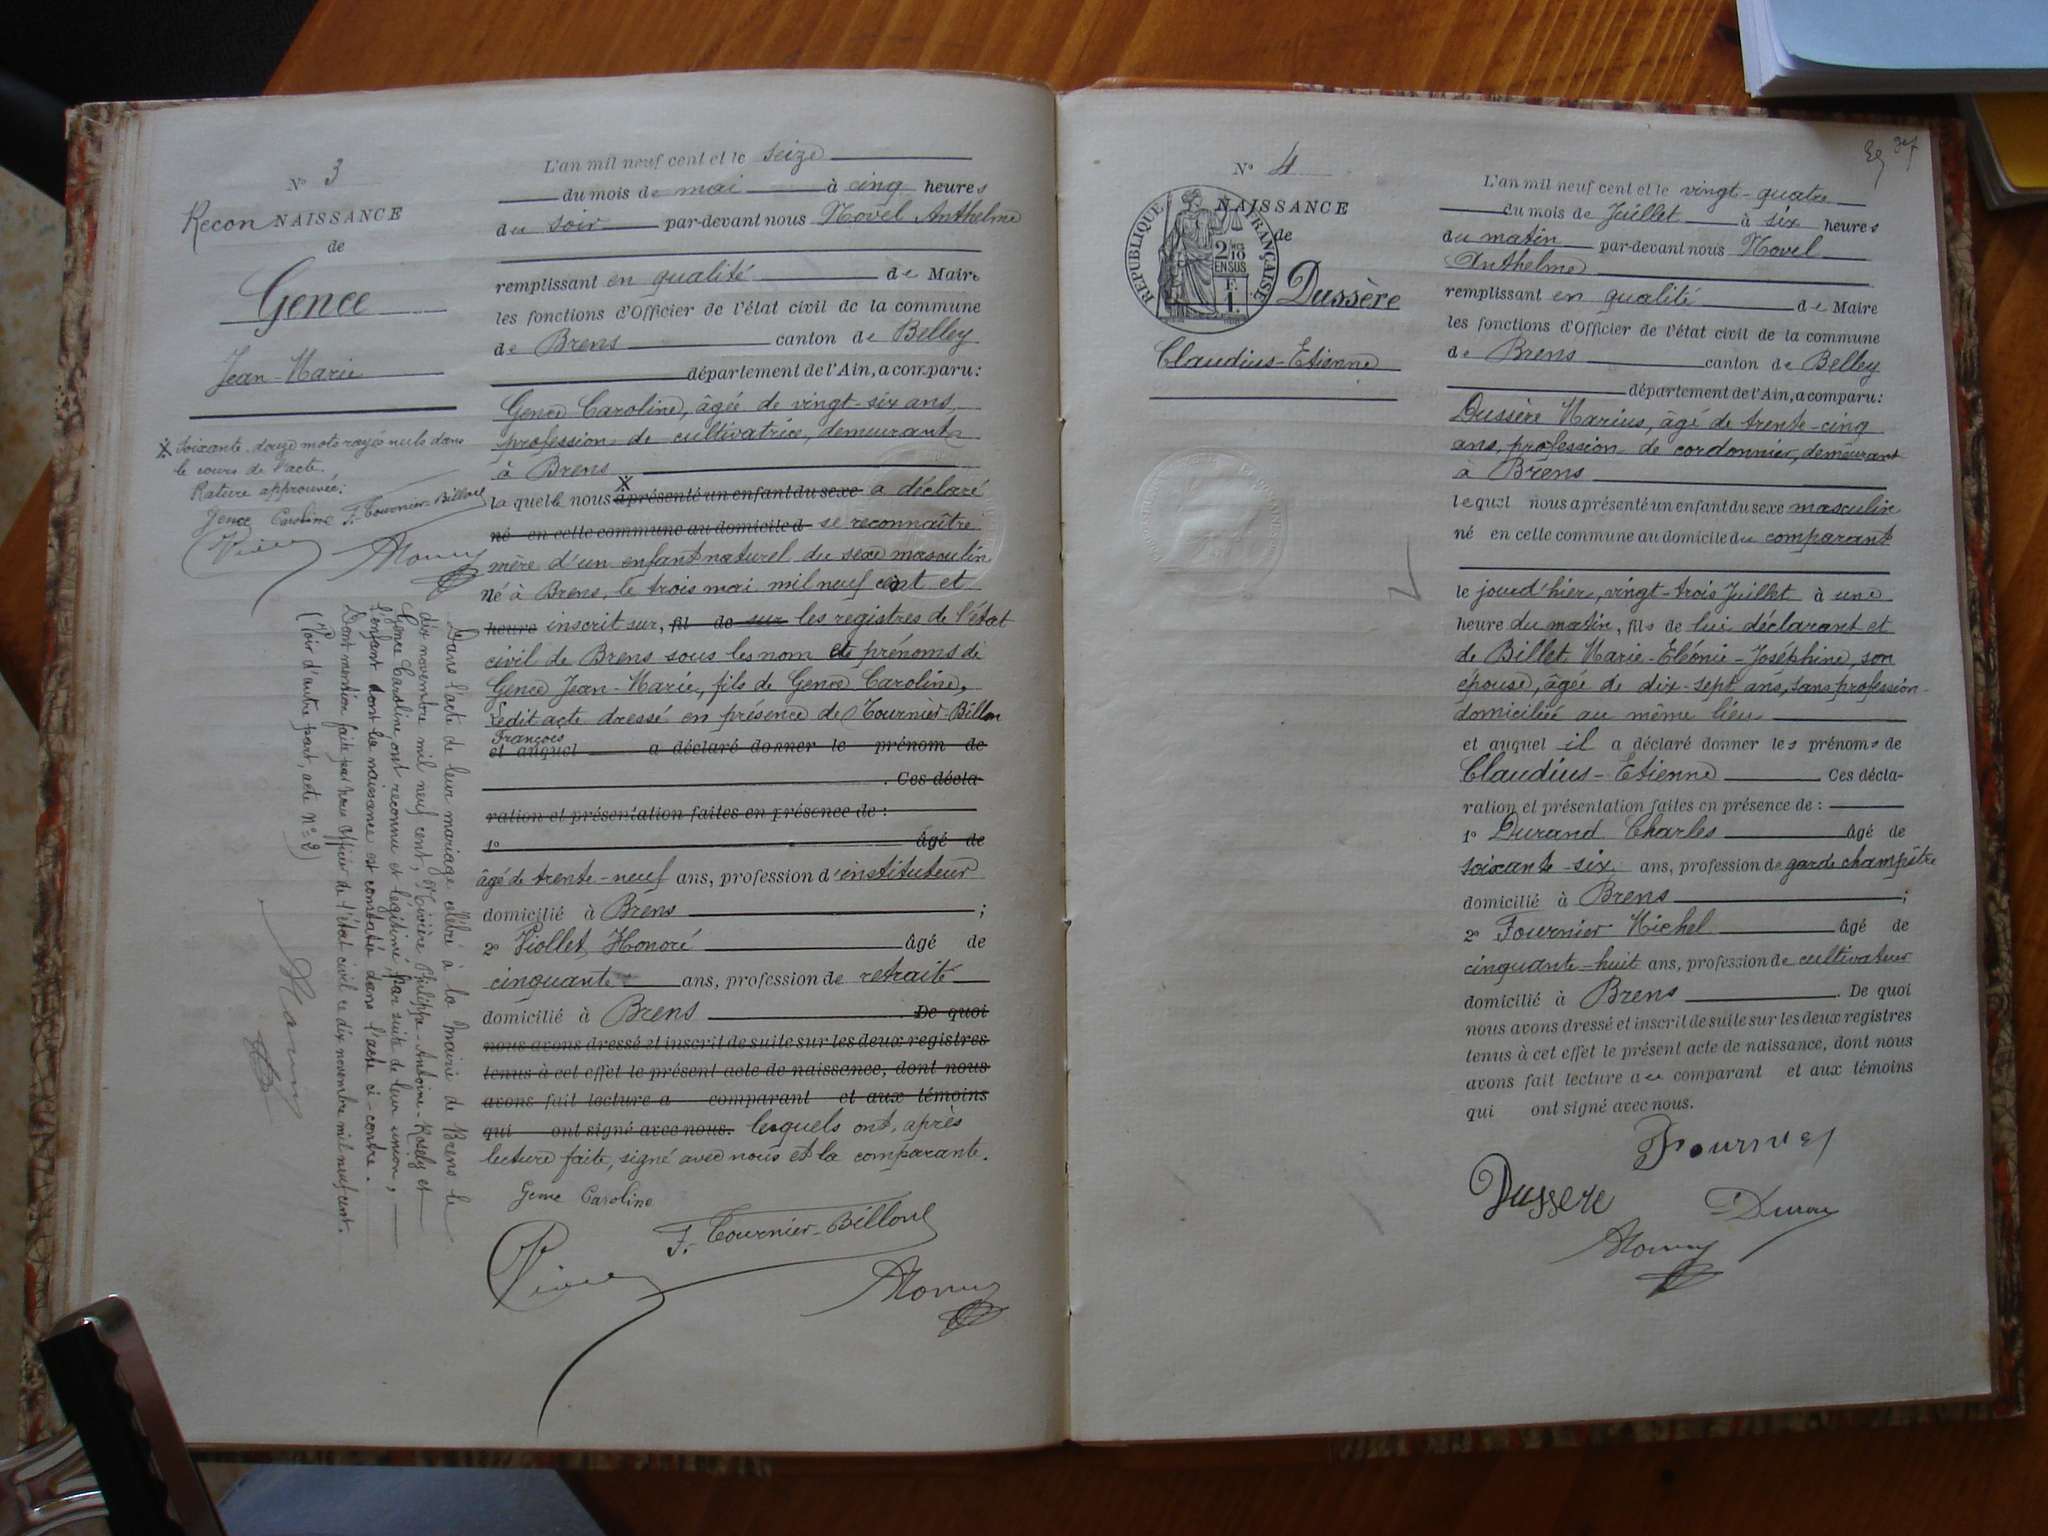 N° 3
Recon NAISSANCE
de
Gence
Jean-Marie
X Soixante-douze mots rayés nuls dans
le cours de l'acte.
Rature approuvée:
Gence Caroline F. Tournier-Billon
L'an mil neuf cent et le seize
du mois de mai à cinq heures
du soir par-devant nous Novel Anthelme
remplissant en qualité de Maire
les fonctions d'Officier de l'état civil de la commune
de Brens canton de Belley
département de l'Ain, a comparu:
Gence Caroline, âgée de vingt-six ans,
profession de cultivatrice, demeurant
à Brens
X
laquelle nous a présenté un enfant du sexe a déclaré
né en cette commune au domicile d se reconnaître
mère d'un enfant naturel du sexe masculin
né à Brens, le trois mai mil neuf cent et
heure inscrit sur, fil de sur les registres de l'état
civil de Brens sous les nom et prénoms de
Gence Jean-Marie, fils de Gence Caroline,
Ledit acte dressé en présence de Tournier-Billon
François
et auquel a déclaré donner le prénom de
. Ces décla-
ration et présentation faites en présence de :
1° âgé de
âgé de trente-neuf ans, profession d'instituteur
domicilié à Brens ;
2° Viollet Honoré âgé de
cinquante ans, profession de retraité
domicilié à Brens . De quoi
nous avons dressé et inscrit de suite sur les deux registres
tenus à cet effet le présent acte de naissance, dont nous
avons fait lecture a comparant et aux témoins
qui ont signé avec nous. lesquels ont, après
lecture faite, signé avec nous et la comparante.
Gence Caroline
F. Tournier-Billon
Dans l'acte de leur mariage célébré à la mairie de Brens le
dix novembre mil neuf cent, Rivière Philippe-Antoine- et
Gence Caroline, ont reconnu et légitimé, par suite de leur union,
l'enfant dont la naissance est constatée dans l'acte ci-contre.
Dont mention faite par nous officier de l'état civil ce dix novembre mil neuf cent.
(Voir d'autre part, acte n° 2)
N° 4
NAISSANCE
de
RÉPUBLIQUE FRANÇAISE
2/10
EN SUS
F.
1.
Dussère
Claudius-Etienne
L'an mil neuf cent et le vingt-quatre
du mois de Juillet à six heures
du matin par-devant nous Novel
Anthelme
remplissant en qualité de Maire
les fonctions d'Officier de l'état civil de la commune
de Brens canton de Belley
département de l'Ain, a comparu:
Dussère Marius, âgé de trente-cinq
ans, profession de cordonnier, demeurant
à Brens
lequel nous a présenté un enfant du sexe masculin
né en cette commune au domicile du comparant
le jour d'hier, vingt-trois Juillet à une
heure du matin, fils de lui déclarant et
de Billet Marie-Eléonie-Joséphine, son
épouse, âgée de dix-sept ans, sans profession
domiciliée au même lieu
et auquel il a déclaré donner les prénoms de
Claudius-Etienne Ces décla-
ration et présentation faites en présence de :
1° Durand Charles âgé de
soixante-six ans, profession de garde champêtre
domicilié à Brens ;
2° Fournier Michel âgé de
cinquante-huit ans, profession de cultivateur
domicilié à Brens . De quoi
nous avons dressé et inscrit de suite sur les deux registres
tenus à cet effet le présent acte de naissance, dont nous
avons fait lecture au comparant et aux témoins
qui ont signé avec nous.
Fournier
Dussere